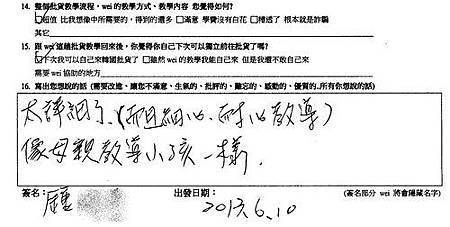 14. 整個批貨教學流程,wei的教學方式、教學內容 您覺得如何?
超值 比我想像中所需要的,得到的還多 □滿意 學費沒有白花 □糟透了 根本就是詐騙
其它
15. 跟 wei 這趟批貨教學回來後,你覺得你自己下次可以獨立前往批貨了嗎?
下次我可以自己來韓國批貨了 □雖然 wei 的教學我能自己來 但是我還不敢自己來
需要 wei 協助的地方
16. 寫出您想說的話 (需要改進、讓您不滿意、生氣的、批評的、難忘的、感動的、優質的...所有你想說的話)
太詳細了,(而且細心、耐心教導)
像母親教導小孩一樣.
簽名: 出發日期: (簽名部分 wei 將會隱藏名字)
2013.6.10